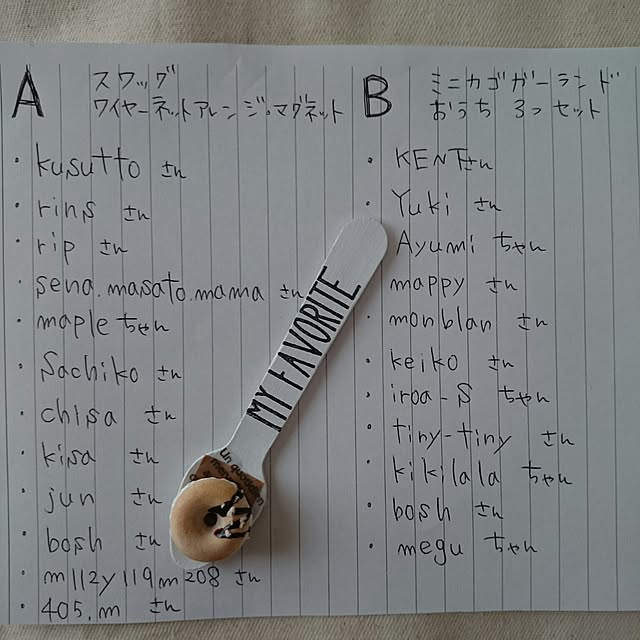 A
スワッグ
ワイヤーネットアレンジ・マグネット
・kusutto さん
・rins さん
・rip さん
・sena.masato.mama さん
・maple ちゃん
・Sachiko さん
・chisa さん
・kisa さん
・jun さん
・bosh さん
・m112y119m208 さん
・405.m さん
B
ミニカゴガーランド
おうち 3っセット
・KENTさん
・Yuki さん
・Ayumi ちゃん
・mappy さん
・monblan さん
・keiko さん
・iroa-s ちゃん
・tiny-tiny さん
・kikilala ちゃん
・bosh さん
・megu ちゃん
MY FAVORITE
Un quotidien